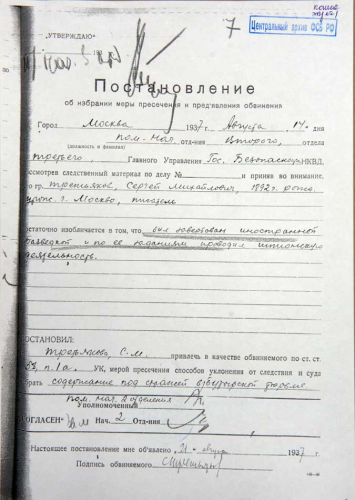 копие
7
Центральный архив ФСБ РФ
„УТВЕРЖДАЮ“
193
Постановление
об избрании меры пресечения и предъявления обвинения
Город Москва 1937 г. Августа 14 дня
пом. нач. отд-ния Второго, отдела
(должность и фамилия)
третьего, Главного Управления Гос. Безопасности НКВД,
ссмотрев следственный материал по делу и приняв во внимание,
о гр. Третьяков, Сергей Михайлович, 1892 г. рожд.
г. Москва, писатель
остаточно изобличается в том, что был завербован иностранной
разведкой и по ее заданиям проводил шпионскую
деятельность.
ОСТАНОВИЛ:
Третьякова, С. М. привлечь в качестве обвиняемого по ст. ст.
58, п. 1а. УК, мерой пресечения способов уклонения от следствия и суда
брать содержание под стражей в Бутырской тюрьме.
пом. нач. 2 отделения
Уполномоченный
СОГЛАСЕН: Нач. 2 Отд-ния
Настоящее постановление мне об‘явлено 21 августа 1937
Подпись обвиняемого